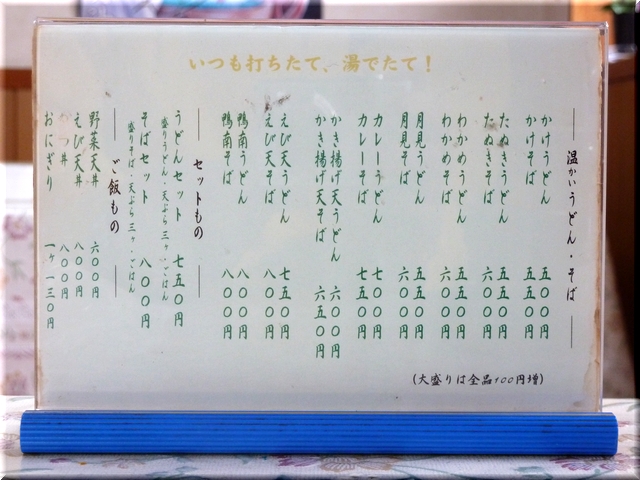 いつも打ちたて、湯でたて!
温かいうどん・そば
かけうどん 五〇〇円
かけそば 五五〇円
たぬきうどん 五五〇円
たぬきそば 六〇〇円
わかめうどん 五五〇円
わかめそば 六〇〇円
月見うどん 五五〇円
月見そば 六〇〇円
カレーうどん 七〇〇円
カレーそば 七五〇円
かき揚げ天うどん 六〇〇円
かき揚げ天そば 六五〇円
えび天うどん 七五〇円
えび天そば 八〇〇円
鴨南うどん 八〇〇円
鴨南そば 八〇〇円
セットもの
うどんセット 七五〇円
盛りうどん・天ぷら三ヶ・ごはん
そばセット 八〇〇円
盛りそば・天ぷら三ヶ・ごはん
ご飯もの
野菜天丼 六〇〇円
えび天丼 八〇〇円
つ丼 八〇〇円
おにぎり 一ヶ 一三〇円
(大盛りは全品100円増)